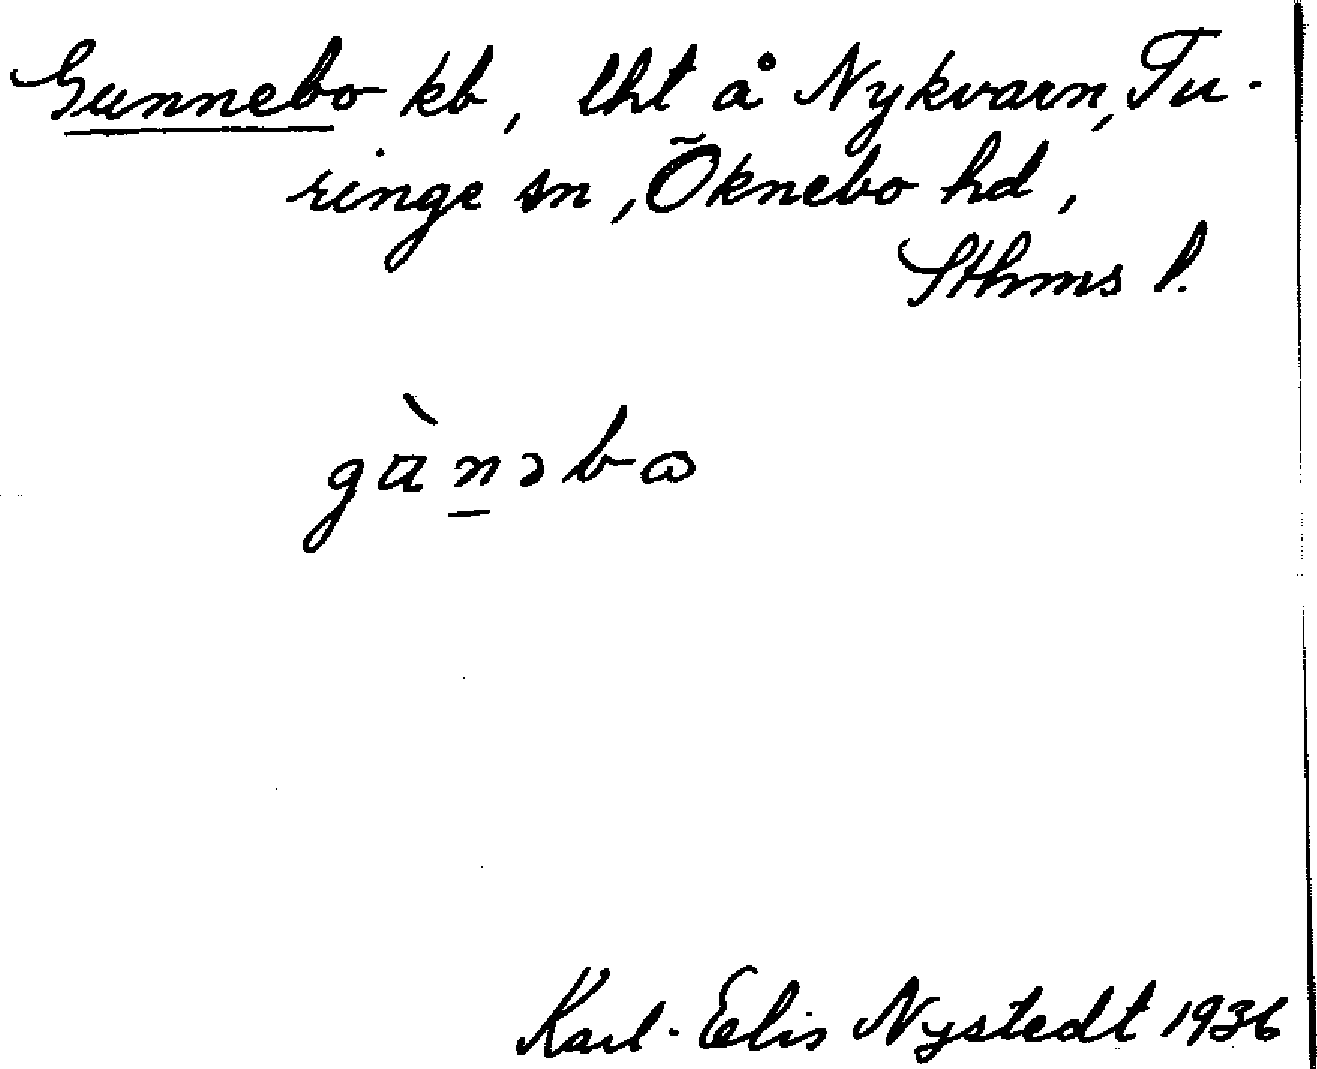 Gunnebo kb, lht å Nykvarn, Tu-
ringe sn, Öknebo hd,
Sthms l.
gùn̲əbɷ
Karl-Elis Nystedt 1936